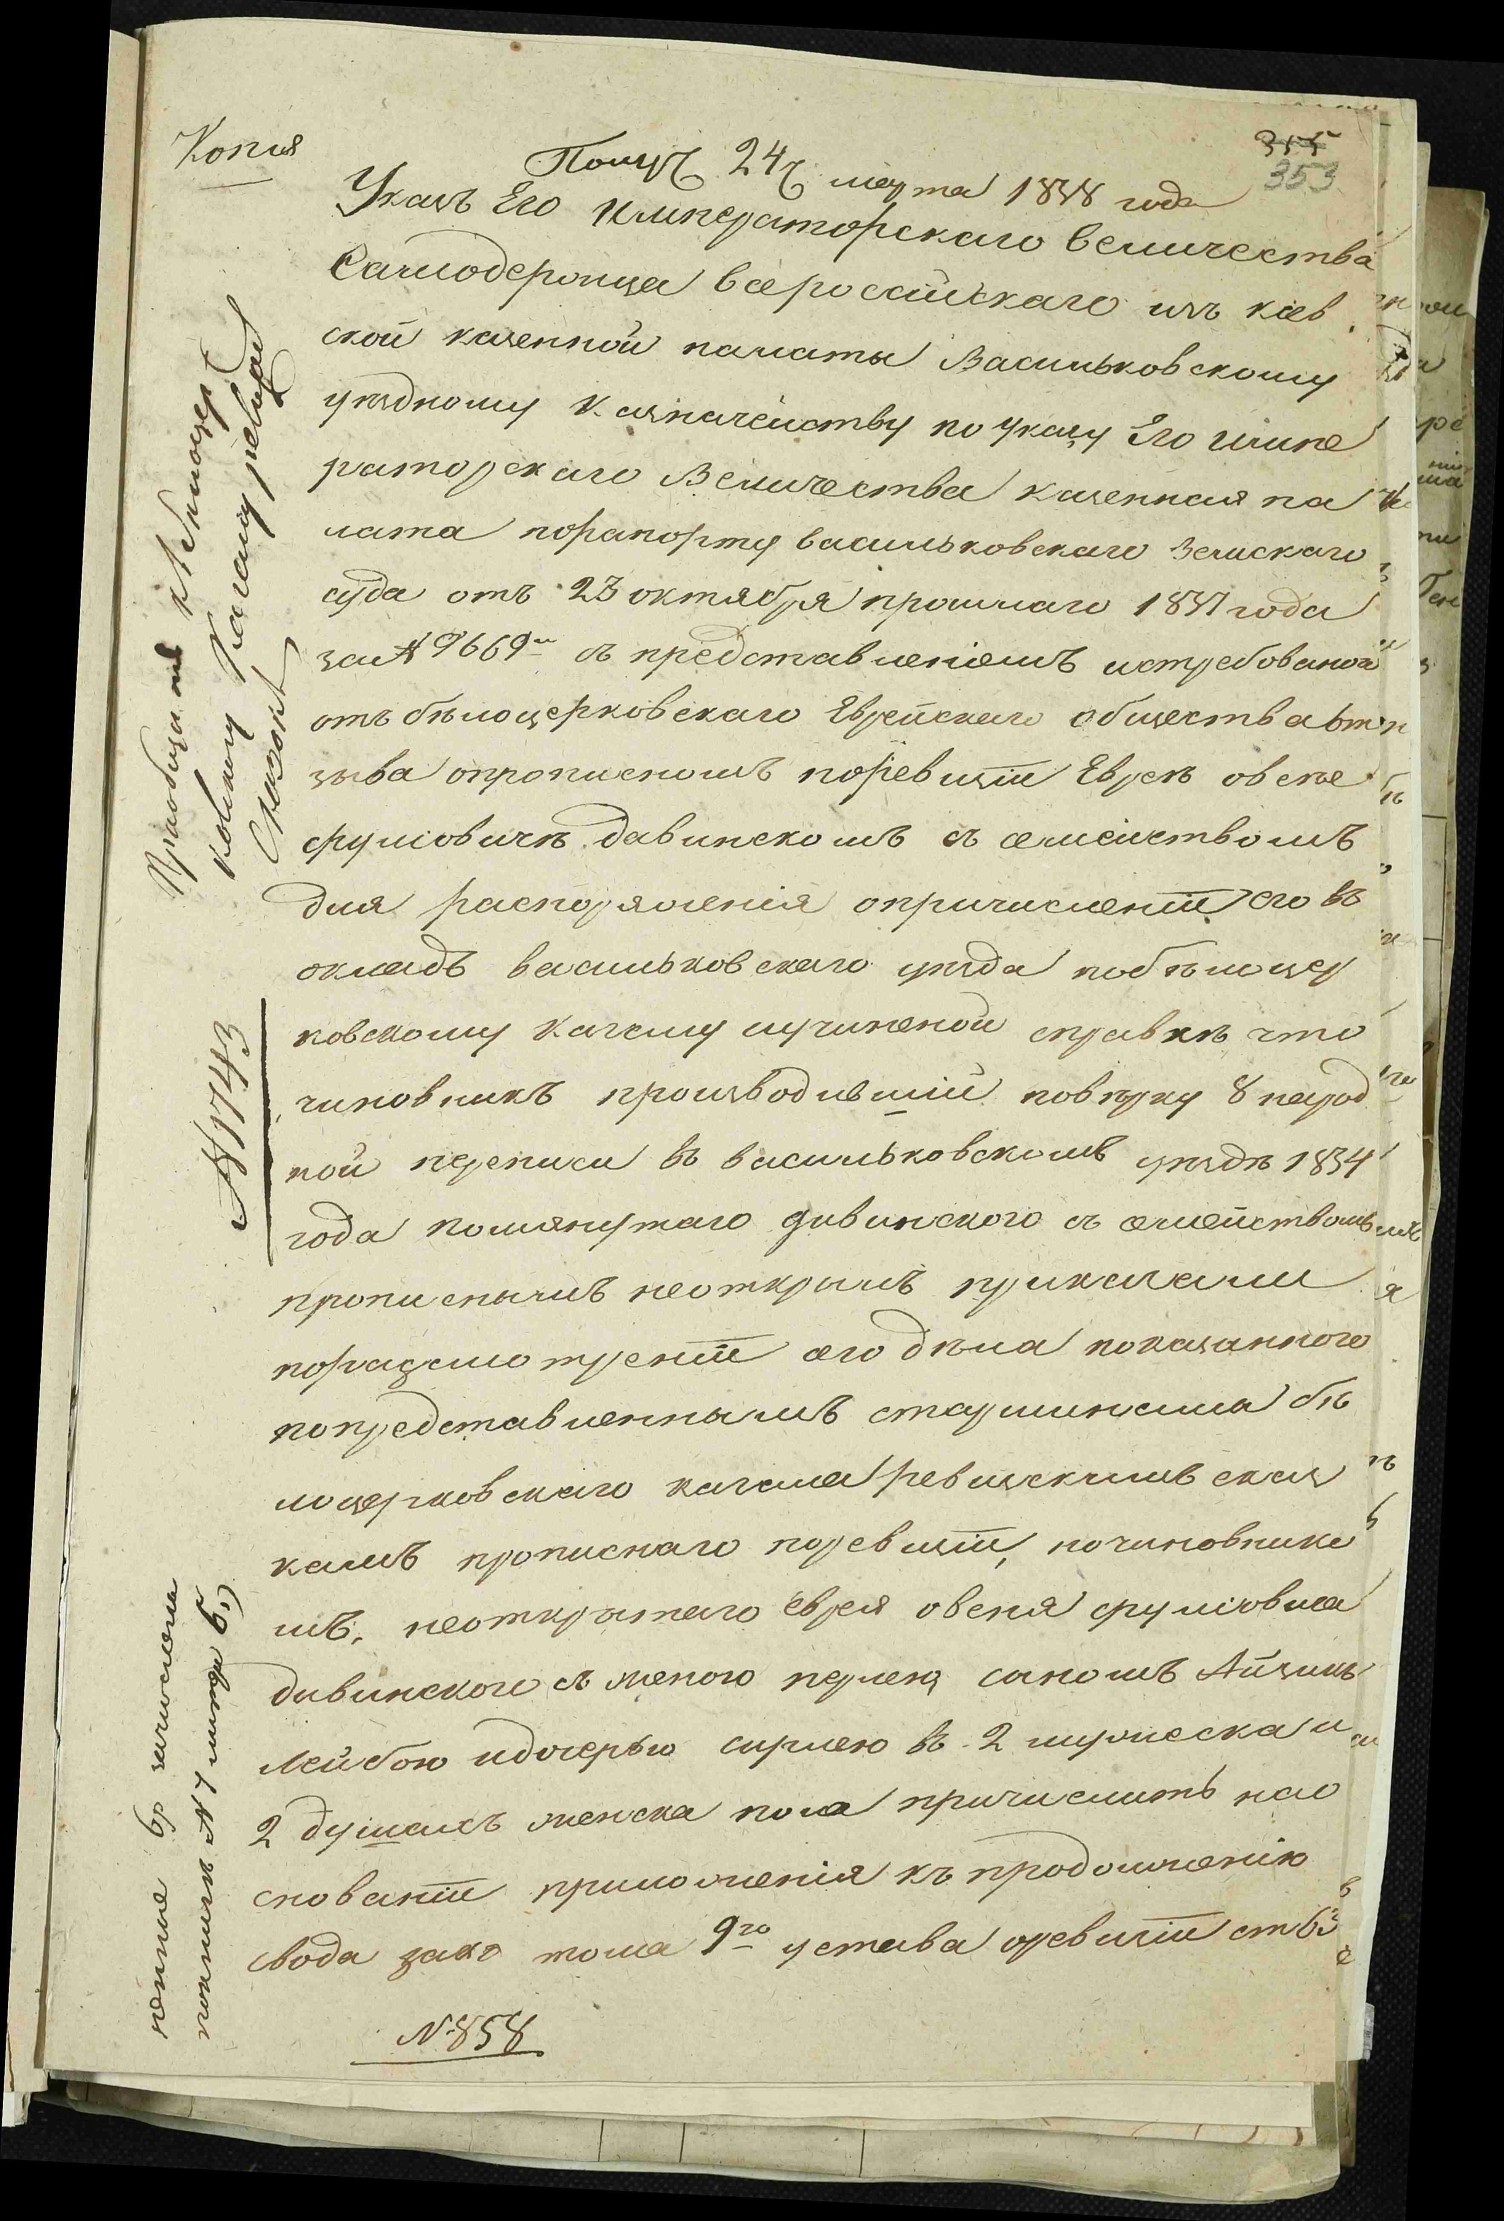 Копия
355
353
Получ 24 марта 1838 года
Указъ Его Императорскаго Величества
Самодержца всеросийскаго изъ киев
ской казенной палаты Васильковскому
уездному Казначейству по указу Его импе
раторскаго Величества казенная па
лата порапорту васильковскаго Земскаго
суда отъ 23 октября прошлаго 1837 года
за № 9669м съ представлениемъ истребованой
отъ белоцерковскаго Еврейскаго общества отт
зыва опрописномъ поревизіи Еврее овсее
сруліовиче дивинскомъ съ семействомъ
для распоряженія опричисленіи его въ
окладъ васильковскаго уезда побѣлоцер
ковскому кагалу иучиненой справкѣ что
чиновникъ производившій повѣрку 8 народ
ной переписи въ васильковскомъ уездѣ 1834
года помянутаго дивинского съ семействомъ
прописнымъ неоткрылъ приказали
поразсмотреніи сего дѣла показанного
попредставленнымъ старшинами бѣ
лоцерковскаго кагала ревизскимъ сказ
камъ прописнаго поревизіи, починовнико
мъ, неоткрытаго еврея овсея сруліовича
дивинского съ женого перлею сыномъ Айзикъ
Лейбою идочерью сирлею въ 2 мужеска и
2 душахъ женска пола причислить нао
снованіи приложенія къ продолженію
свода зако тома 9го устава оревизіи ст 63
№ 858
Приобща къ Белоцер
ковскому Кагалу ревизс
Сказок
№ 1743
ление вр зачислены
покниге № 7 литера б,